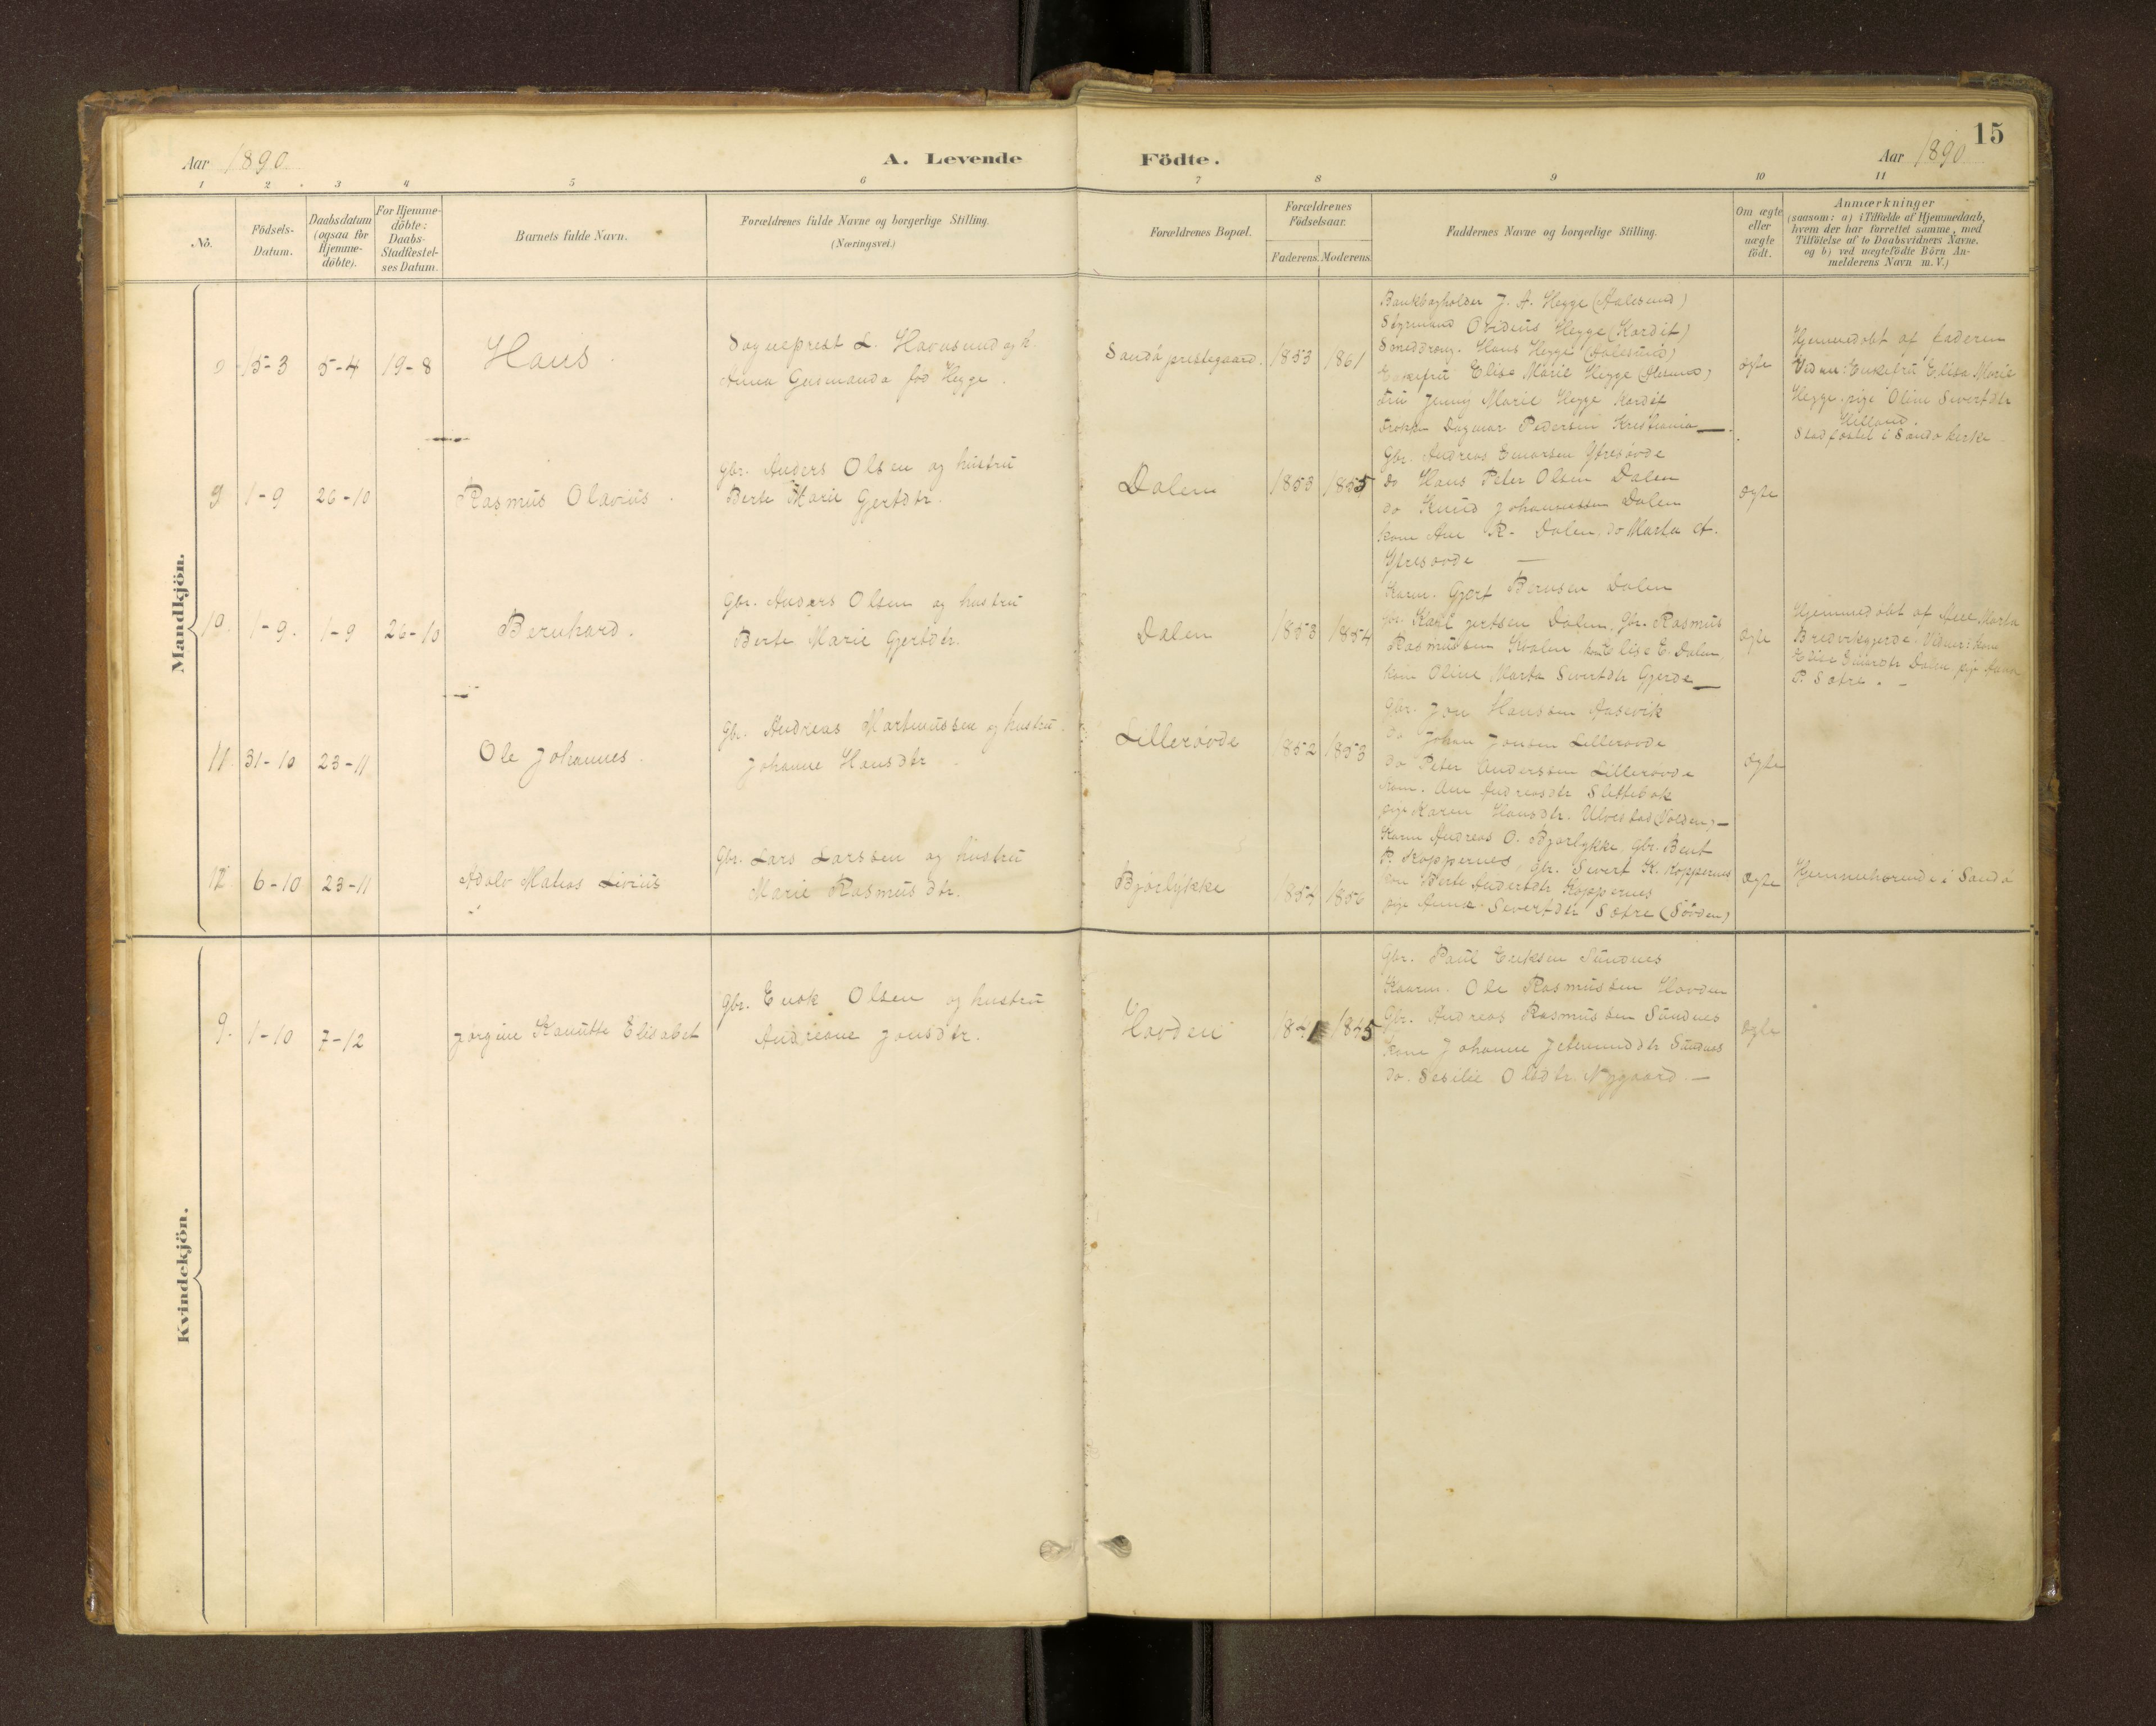 15
Aar 1890
A. Levende Födte.
Aar 1890
1 2 3 4 5 6 7 8 9 10 11
No.
Födsels-
Datum.
Daabsdatum
(ogsaa for
Hjemme-
döbte).
For Hjemme-
döbte:
Daabs-
Stadfæstel-
ses Datum.
Barnets fulde Navn.
Forældrenes fulde Navne og borgerlige Stilling.
(Næringsvei.)
Forældrenes Bopæl.
Forældrenes
Födselsaar.
Faderens. Moderens.
Faddernes Navne og borgerlige Stilling.
Om ægte
eller
uægte
födt.
Anmærkninger
(saasom: a) i Tilfælde af Hjemmedaab,
hvem der har forrettet samme, med
Tilföielse af to Daabsvidners Navne.
og b) ved uægtefödte Börn An-
melderens Navn m. V.)
Mandkjön.
15-3 5-4 19-8
Hans.
Sogneprest L. Havnsund og h.
Anna Gusmanda fød Hegge.
Sandø prestegaard.
1853 1861
Bankbogholder J. A. Hegge (Aalesund)
Styrmand Ovidius Hegge (Kardif)
Hans Hegge (Aalesund)
Enkefru Elise Marie Hegge
Fru Jenny Marie Hegge Kardif
Frøken Dagmar Pedersen Kristiania
ægte
Hjemmedøbt af faderen
Vidner: Enkefru Elise Marie
Hegge, pige Oline Sivertdtr
Stadfæstet i Sandø kirke
9 1-9 26-10
Rasmus Olavius.
Gbr. Anders Olsen og hustru
Berte Marie Gjertdtr.
Dalen
1853 1855
Gbr. Andreas Einarsen Ytresøvde
do Hans Peter Olsen Dalen
do Knud Johannessen Dalen
kone Ane R. Dalen, do Marta A.
Ytresøvde
ægte
10. 1-9. 1-9 26-10
Bernhard.
Gbr. Anders Olsen og hustru
Berte Marie Gjertdtr.
Dalen
1853 1854
Kaarm. Gjert Bernsen Dalen
Gbr. Karl Gertsen Dalen, Gbr. Rasmus
Rasmussen Kvalen, kone Elise E. Dalen
kone Oline Marta Sivertdtr Gjerde
ægte
Hjemmedøbt af Ane Marta
Vidner: kone
Elise Einardtr Dalen, pige Anna
P. Sætre.
11. 31-10 23-11
Ole Johannes.
Gbr. Andreas Martinussen og hustru
Johanne Hansdtr
Lillesøvde
1852 1853
Gbr. Jon Hanssen Aasevik
do Johan Jonsen Lillesøvde
do Peter Anderssen Lillesøvde
kone. Ane Andreasdtr Slettebak
pige Karen Hansdtr. Ulvestad (Volden)
ægte
12 6-10 23-11
Adolv Matias Livius
Gbr. Lars Larssen og hustru
Marie Rasmusdtr.
Bjørlykke
1854 1856
Kaarm Andreas O. Bjørlykke, Gbr. Bent
P. Koppernes, Gbr. Sivert K. Koppernes
kone Berte Koppernes
pige Anna Sivertdtr Sætre (Søvden)
ægte
Hjemmehørende i Sandø
Kvindekjön.
9. 1-10 7-12
Jørgine Kanutte Elisabet
Gbr. Enok Olsen og hustru
Andreane Jonsdtr.
Hovden
1841 1845
Gbr. Paul Eriksen Sundnes
Kaarm. Ole Rasmussen Hovden
Gbr. Andreas Rasmussen Sundnes
kone Johanne Jetmunddtr Sundnes
do. Sesilie Olsdtr. Nygaard.
ægte